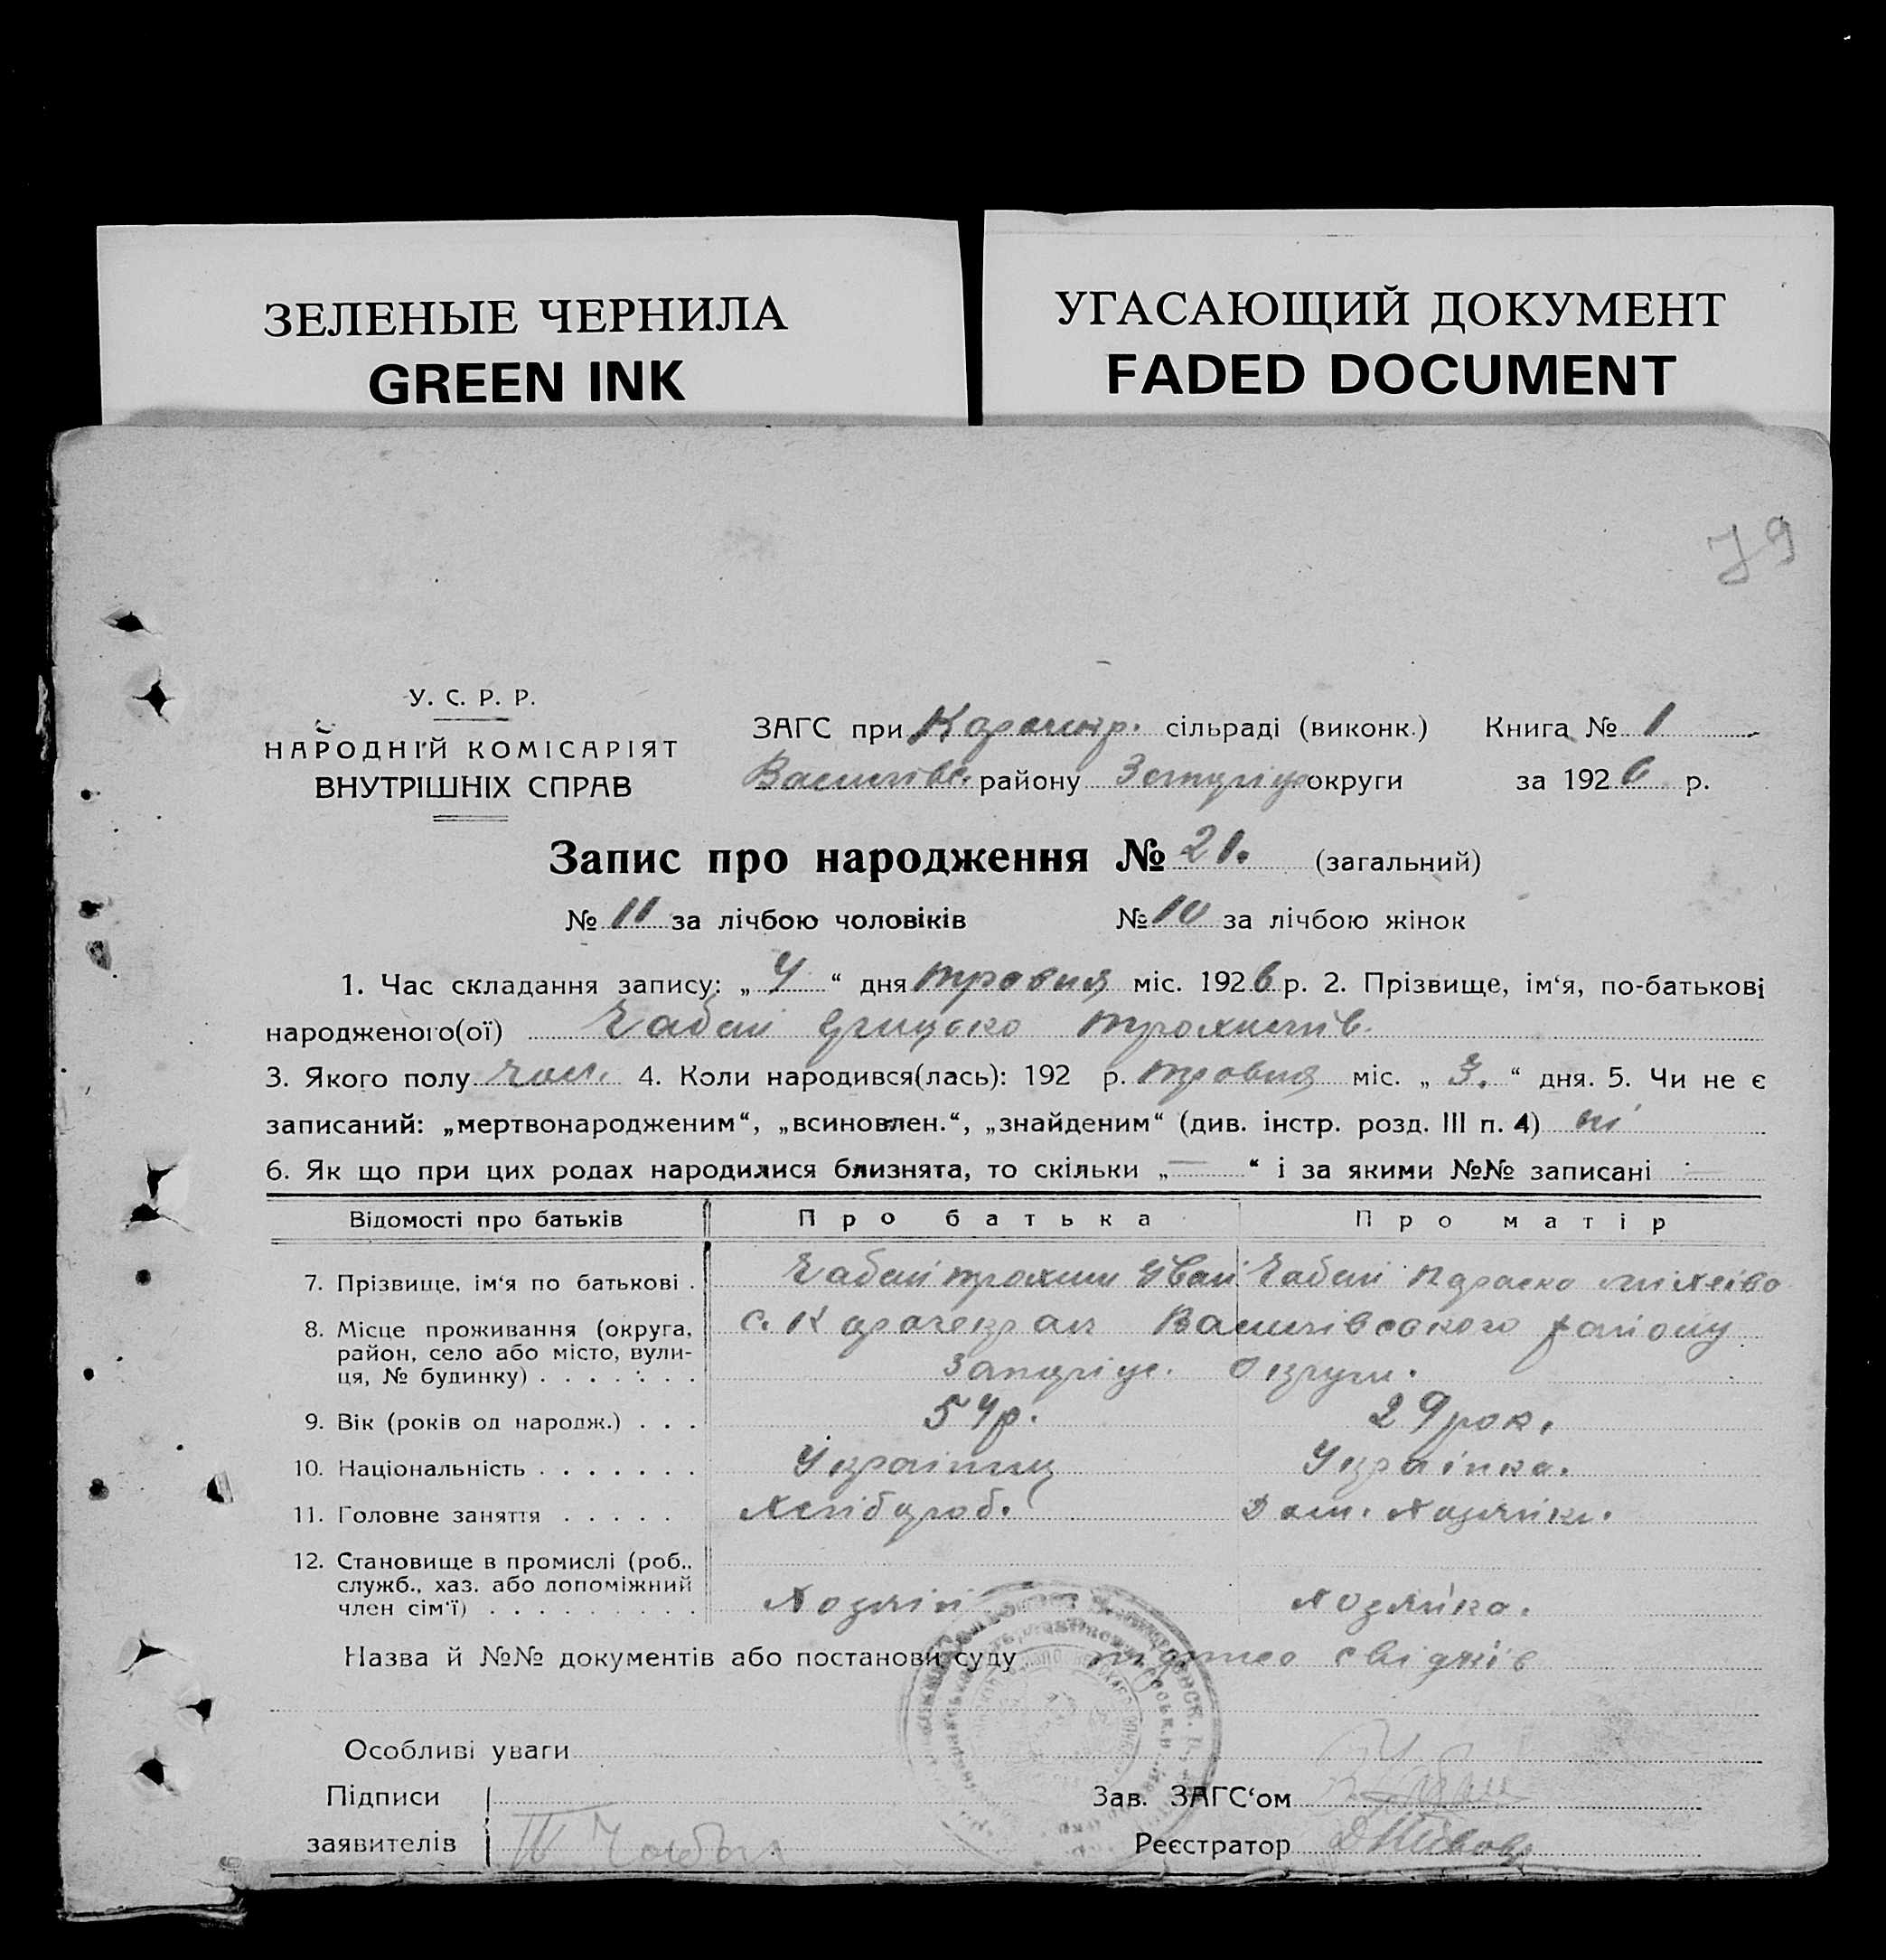 ЗЕЛЕНЫЕ ЧЕРНИЛА
GREEN INK
УГАСАЮЩИЙ ДОКУМЕНТ
FADED DOCUMENT
79
У. С. Р. Р.
НАРОДНІЙ КОМІСАРІЯТ
ВНУТРІШНІХ СПРАВ
ЗАГС при Карачекр. сільраді (виконк.) Книга № 1
Василівс. району Запоріж округи за 1926 р.
Запис про народження № 21. (загальний)
№ 11 за лічбою чоловіків № 10 за лічбою жінок
1. Час складання запису: „ 4 “ дня травня міс. 1926 р. 2. Прізвище, ім‘я, по-батькові
народженого(ої) Чабан Грицько Трохимів.
3. Якого полу чол. 4. Коли народився(лась): 192 р. травня міс. „ 3. “ дня. 5. Чи не є
записаний: „мертвонародженим“, „всиновлен.“, „знайденим“ (див. інстр. розд. III п. 4) ні
6. Як що при цих родах народилися близнята, то скільки „ — “ і за якими №№ записані —
Відомості про батьків Про батька Про матір
7. Прізвище, ім‘я по батькові . Чабан Трохим Іван Чабан Параска
8. Місце проживання (округа, с. Карачекрак Василівського району
район, село або місто, вули-
ця, № будинку) . . . . . . . Запоріж. Округи.
9. Вік (років од народж.) . . . 54р. 29 рок.
10. Національність . . . . . . . Українец Українка.
11. Головне заняття . . . . . Хлібороб. Дом. Хозяйка.
12. Становище в промислі (роб.,
служб., хаз. або допоміжний
член сім‘ї) . . . . . . . . . Хозяїн Хозяйка.
Назва й №№ документів або постанови суду свідків
Особливі уваги
Підписи Зав. ЗАГС‘ом
заявителів Чабан Реєстратор